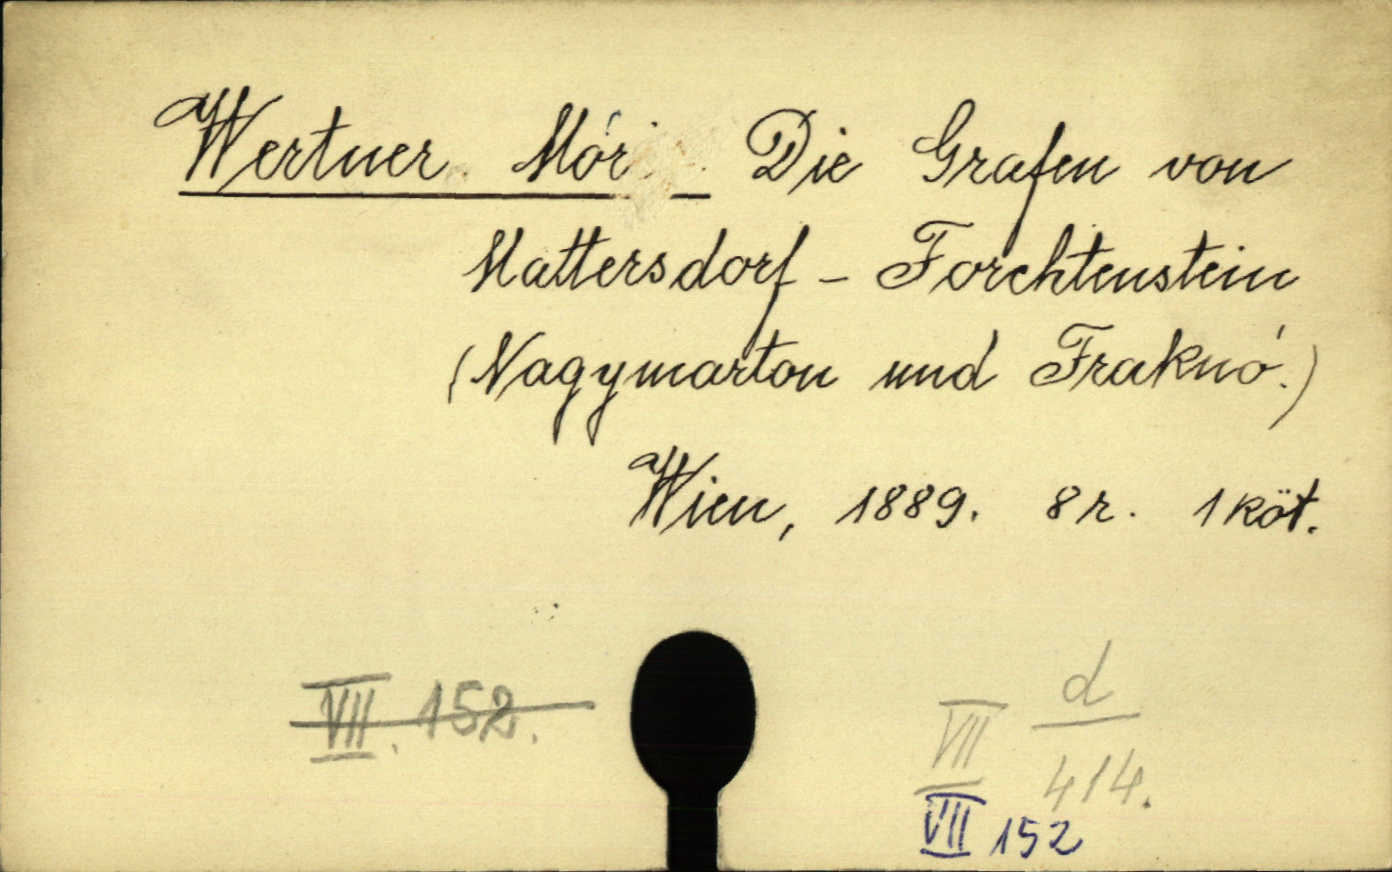 Wertner Mór Die Grafen von
Mattersdorf - Forchtenstein
(Nagymarton und Fraknó.)
Wien, 1889. 8r. 1 köt.
VII. 152.
VII d/414.
VII 152